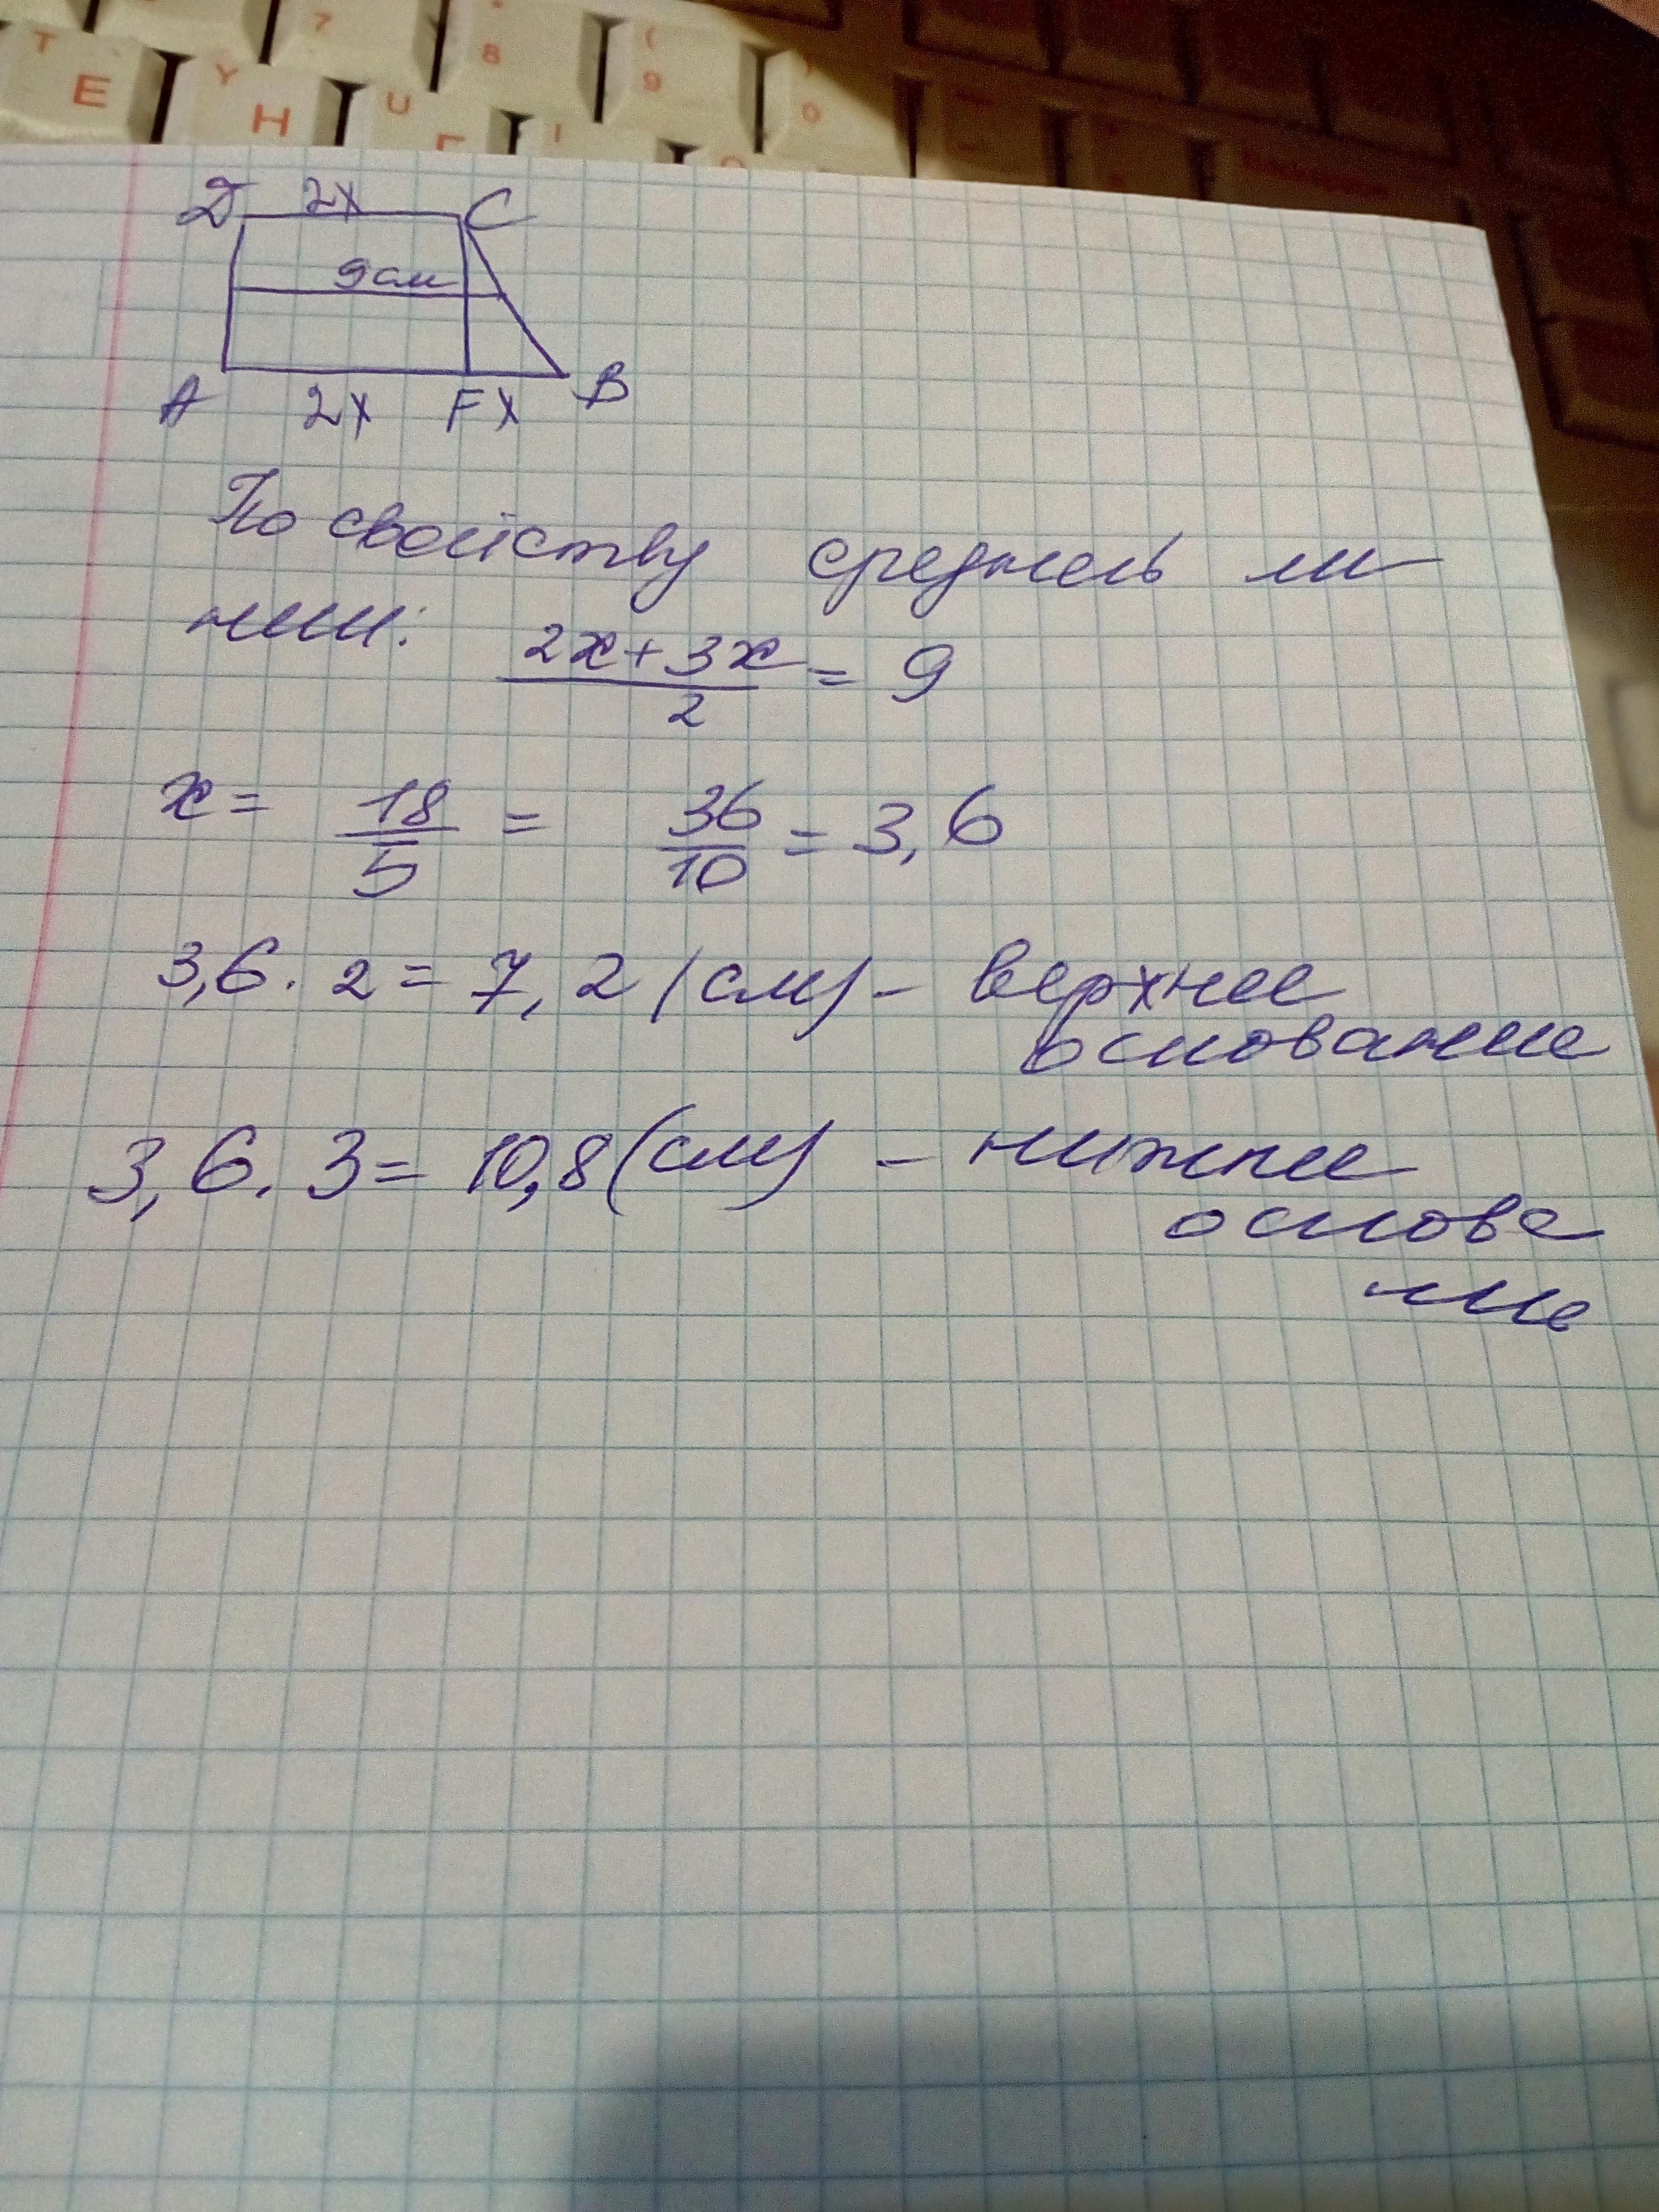 7 * 8 ( 9 ) 0
T E Y H U Г I
D 2x C
9 см
A 2x F x B
По свойству средней ли
нии: 2x + 3x / 2 = 9
x = 18/5 = 36/10 = 3,6
3,6 · 2 = 7,2 (см) - верхнее
основание
3,6 · 3 = 10,8 (см) - нижнее
основа
ние